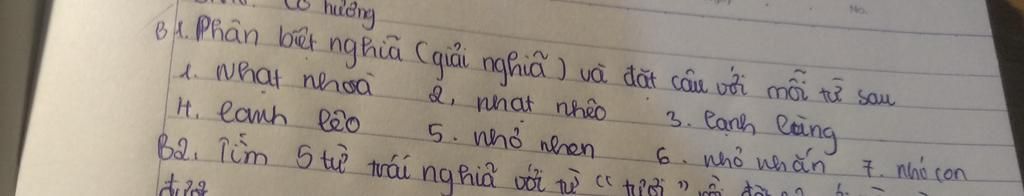 cô hương
B1. Phân biệt nghĩa (giải nghĩa) và đặt câu với mỗi từ sau
1. Nhạt nhoà 2, nhạt nhẽo 3. lạnh lùng
4. lạnh lẽo 5. nhỏ nhen 6. nhỏ nhắn 7. nhỏ con
B2. Tìm 5 từ trái nghĩa với từ "tươi"